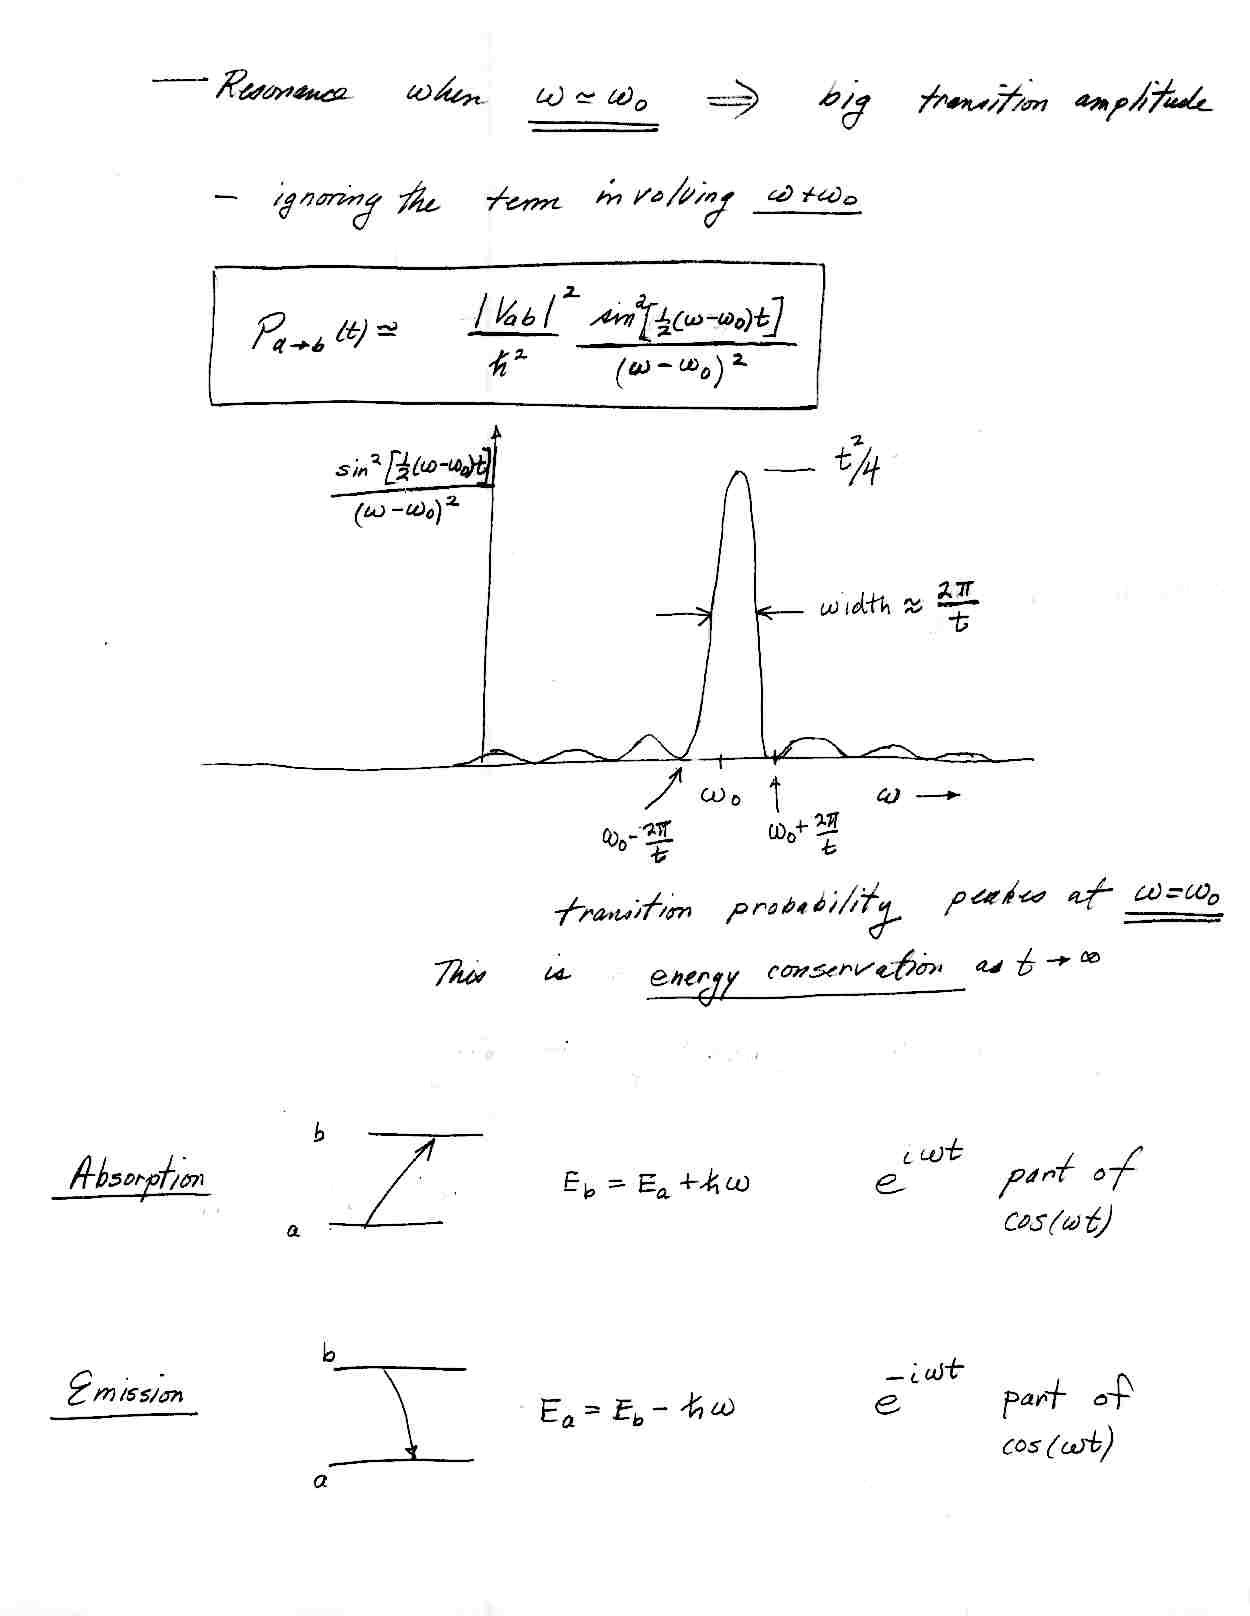 — Resonance when ω ≃ ω₀ ⟹ big transition amplitude
– ignoring the term involving ω+ω₀
P_{a→b}(t) ≃ |V_{ab}|²/ħ² sin²[½(ω-ω₀)t]/(ω-ω₀)²
sin²[½(ω-ω₀)t]/(ω-ω₀)²
t²/4
width ≈ 2π/t
ω₀
ω →
ω₀-2π/t
ω₀+2π/t
transition probability peakes at ω=ω₀
This is energy conservation as t→∞
b
Absorption
E_b = E_a + ħω
e^{iωt} part of
cos(ωt)
a
b
Emission
E_a = E_b - ħω
e^{-iωt} part of
cos(ωt)
a